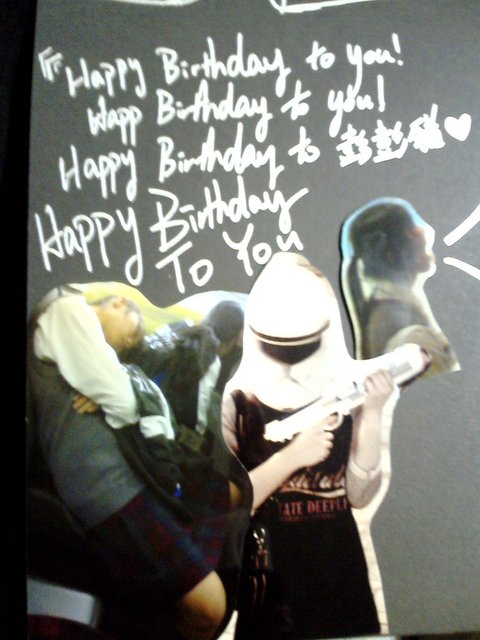 『Happy Birthday to you!
Happ Birthday to you!
Happy Birthday to 彭彭
Happy Birthday
To You
ATE DEEPL